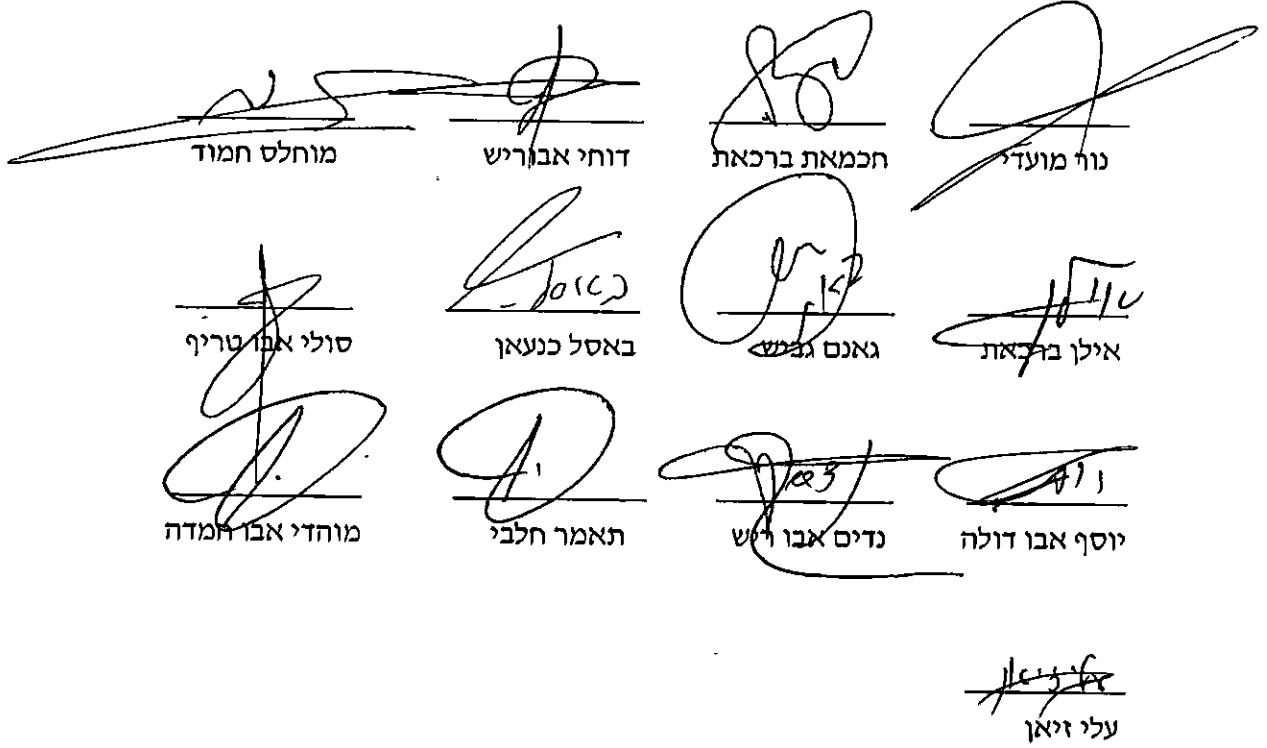 נור מועדי חכמאת ברכאת דוחי אבוריש מוחלס חמוד
אילן ברכאת גאנם גביש באסל כנעאן סולי אבו טריף
יוסף אבו דולה נדים אבו ריש תאמר חלבי מוהדי אבו חמדה
עלי זיאן